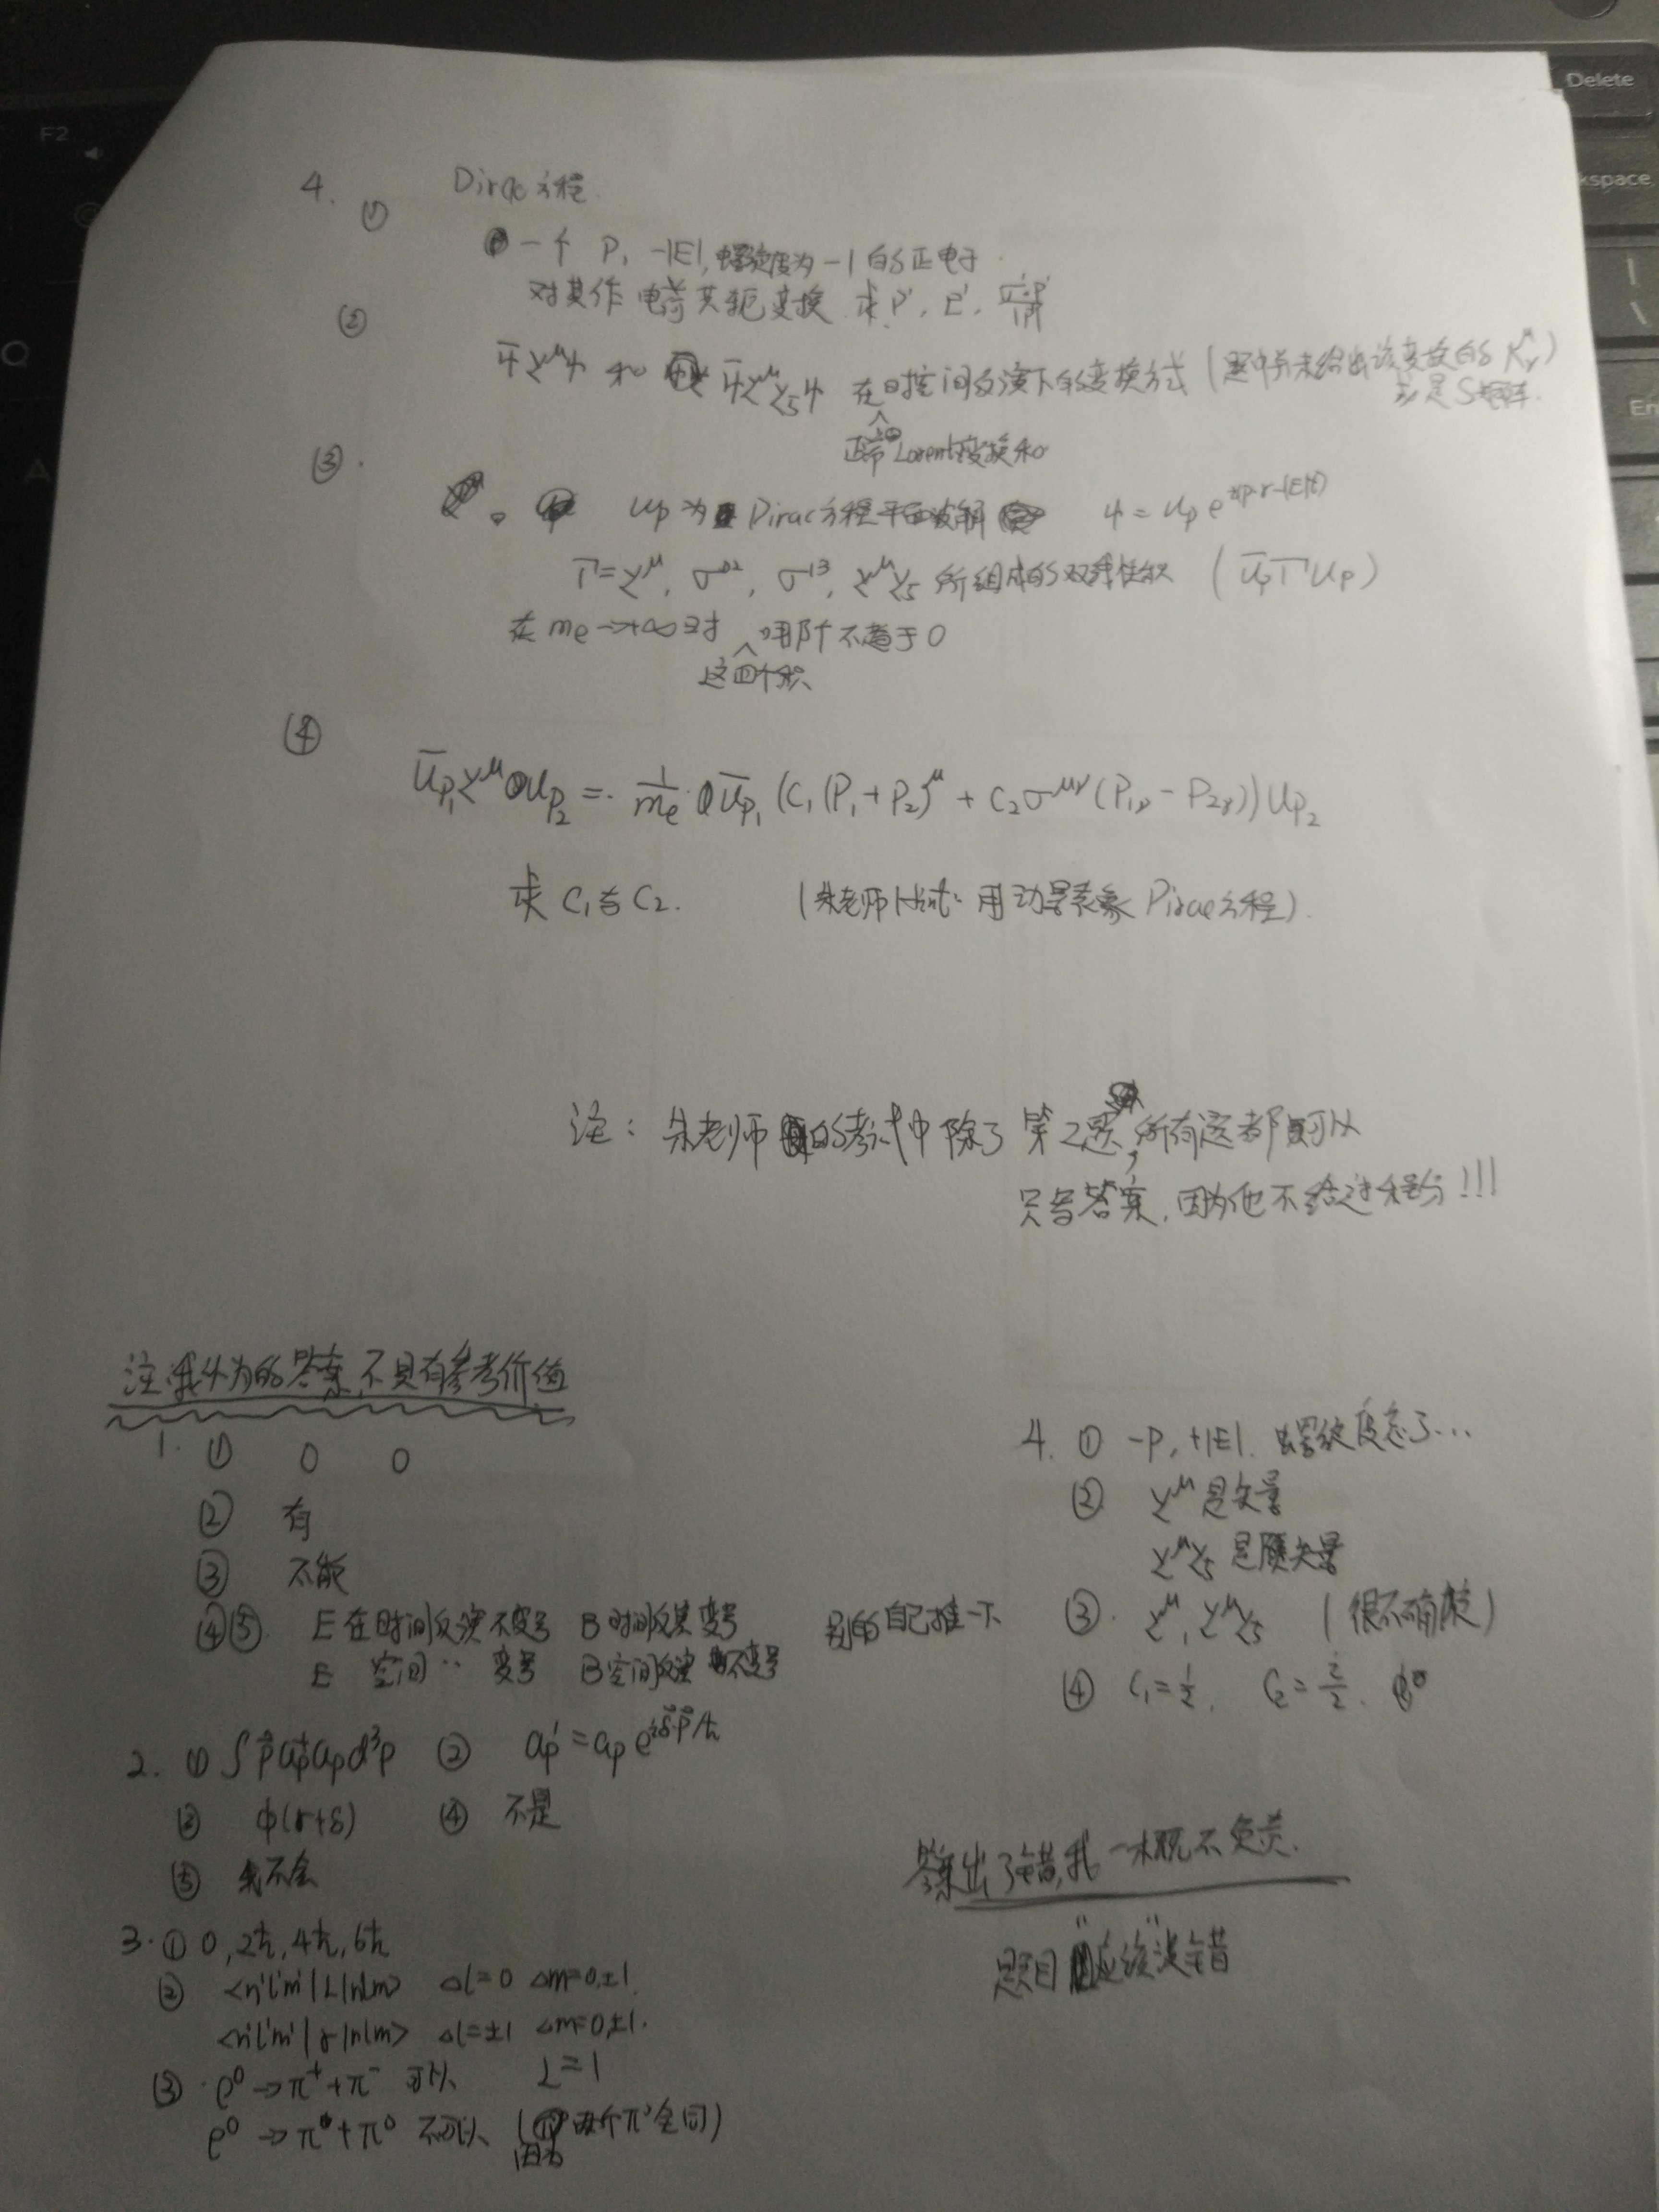 Delete
F2
kspace
En
4. Dirac方程
① 一个 P, -|E|, 螺旋度为 -1 的正电子
对其作电荷共轭变换 求P', E',
② ψ̄γ^μψ 和 ψ̄γ^μγ_5ψ 在时空间反演下的变换方式 (题中并未给出该变换的
正常Lorentz变换和
是S矩阵.
③. u_p 为 Dirac方程平面波解 ψ = u_p e^{i(p·r-|E|t)}
Γ = γ^μ, σ^{02}, σ^{13}, γ^μγ_5 所组成的双线性积 (ū_pΓu_p)
在 m_e→+∞时 哪个不趋于0
这四个积
④ ū_{p_1}γ^μu_{p_2} = \frac{1}{m_e} ū_{p_1} (C_1(P_1+P_2)^μ + C_2σ^{μν}(P_{1ν} - P_{2ν})) u_{p_2}
求 C_1与 C_2. (朱老师 用动量表象 Dirac方程).
注: 朱老师的考试中除了第2题, 所有题都可以
只写答案, 因为他不给过程分!!!
注:我认为的答案,不具有参考价值
1. ① 0 0
② 有
③ 不能
④⑤. E 在时间反演不变号 B 时间反演变号 别的自己推一下
E 空间 ·· 变号 B 空间反演不变号
2. ① ∫ p⃗ a_p^+ a_p d^3p ② a_p' = a_p e^{iδ⃗·p⃗/ħ}
③ φ(r+δ) ④ 不是
⑤ 我不会
3. ① 0, 2ħ, 4ħ, 6ħ
② <n'l'm'|L|nlm> Δl=0 Δm=0,±1.
<n'l'm'|r|nlm> Δl=±1 Δm=0,±1.
③ ρ^0→π^+ + π^- 可以 L=1
ρ^0→π^0 + π^0 不可以 (因为两个π^0全同)
4. ① -P, +|E|. 螺旋度忘了...
② γ^μ 是矢量
γ^μγ_5 是赝矢量
③. γ^μ, γ^μγ_5 (很不确定)
④ C_1 = \frac{1}{2}, C_2 = \frac{i}{2}.
答案出了错,我一概不负责.
题目"应该"没错